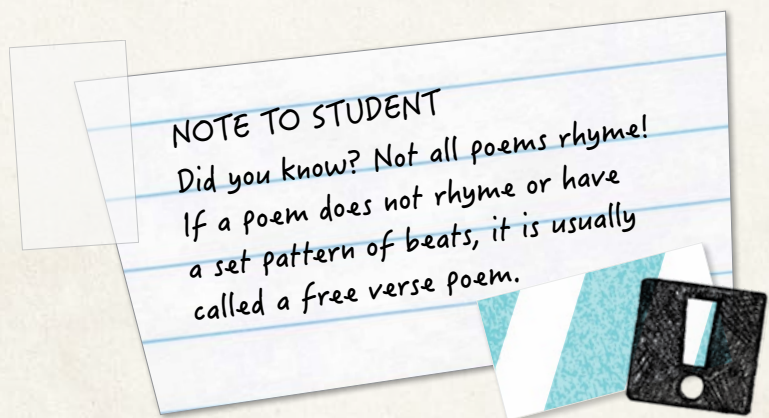 NOTE TO STUDENT
Did you know? Not all poems rhyme!
If a poem does not rhyme or have
a set pattern of beats, it is usually
called a free verse poem.